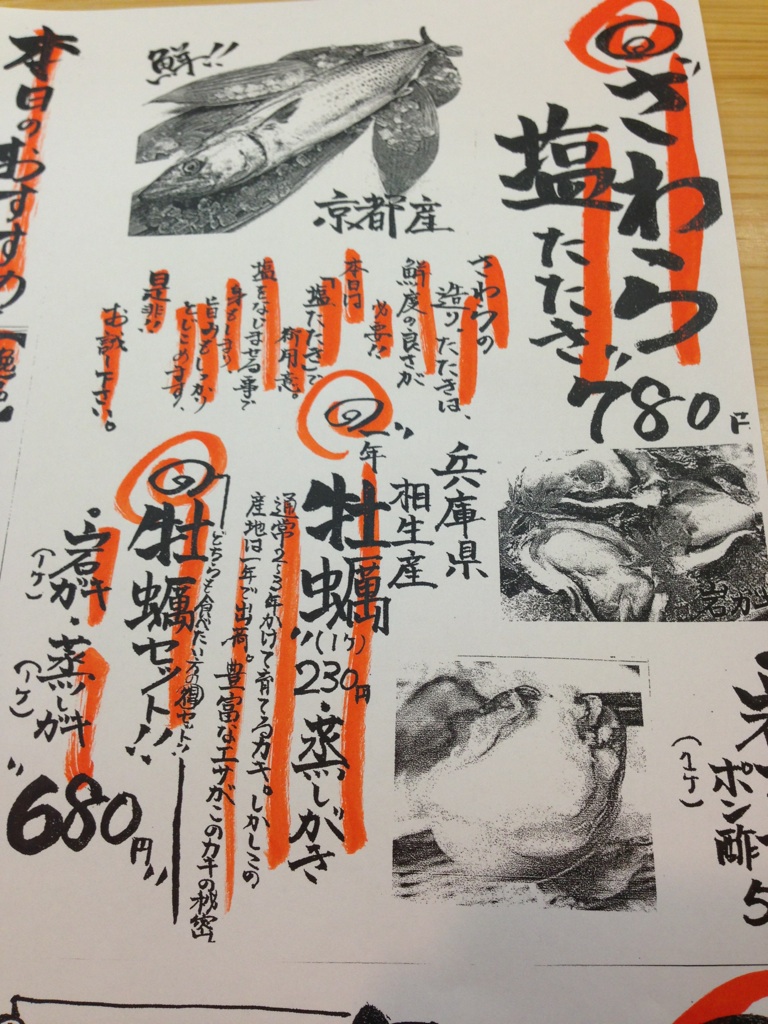 ざわら
塩たたき〃
780円
鮮!!
京都産
さわらの
造り、たたきは、
鮮度の良さが
必要!!
本日は
「塩たたき」で
御用意。
塩をなじませる事で
身をしまり
旨みをしっかり
とじこめます、
是非!!
お試し下さい。
岩ガ
ポン酢
(1ケ)
5
兵庫県
相生産
〃一年
牡蠣〃(1ケ)
230円
・蒸しがき
通常2〜3年かけて育てるカキ。しかしこの
産地は一年で出荷。豊富なエサがこのカキの秘密
牡蠣セット!!
どちらも食べたい方の得セット!!
・岩ガキ
(1ケ)
・蒸しガキ
(1ケ)
〃680円〃
本日のおすすめ